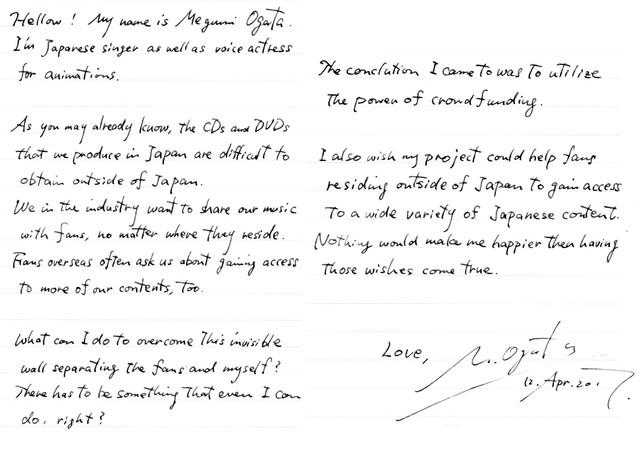 Hellow! My name is Megumi Ogata.
I'm Japanese singer as well as voice actress
for animations.
As you may already know, the CDs and DVDs
that we produce in Japan are difficult to
obtain outside of Japan.
We in the industry want to share our music
with fans, no matter where they reside.
Frans overseas often ask us about gaining access
to more of our contents, too.
What can I do to overcome this invisible
wall separating the fans and myself?
There has to be something that even I can
do. right?
The conclution I came to was to utilize
the power of crowdfunding.
I also wish my project could help fans
residing outside of Japan to gain access
to a wide variety of Japanese content.
Nothing would make me happier then having
those wishes come true.
Love, M. Ogata
12. Apr. 2017.